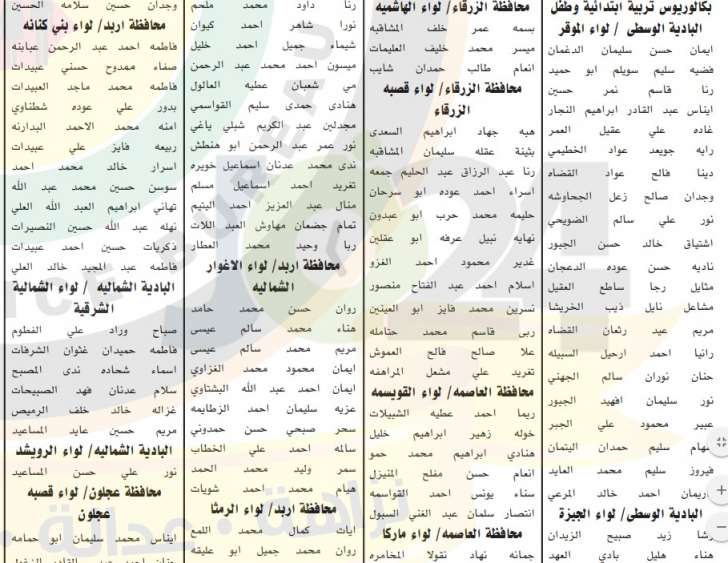 بكالوريوس تربية ابتدائية وطفل
البادية الوسطى / لواء الموقر
ايمان حسن سليمان الدغمان
فضيه سليم سويلم ابو حميد
رنا قاسم نمر حسين
ايناس عبد القادر ابراهيم النجار
غاده علي عقيل العمر
رايه جويعد عواد الخطيمي
دينا فالح عواد القضاه
وجدان صالح زعل الجحاوشه
نور علي سالم الضويحي
اشتياق خالد حسن الجبور
ناديه حسن عوده الدعجان
مثايل رجا ساطع العقيل
مشاعل نايل ذيب الخريشا
مريم عيد رثعان القضاه
رانيا احمد ارحيل السبيله
حنان نوران سالم الجهني
نور سليمان افهيد الجبور
عبير محمود علي الجبر
سهام سليم حمدان اليتمان
فيروز سليم محمد العايد
ناريمان احمد خالد المرعي
البادية الوسطى/ لواء الجيزة
رشا زيد صبيح الزيدان
هناء هليل بادي العهد
محافظة الزرقاء/ لواء الهاشميه
بسمه عمر خلف المشاقبه
ميسر محمد خليف العليمات
انعام طالب حمدان شايب
محافظة الزرقاء/ لواء قصبه
الزرقاء
هبه جهاد ابراهيم السعدي
بثينة عقله سليمان المشاقبه
رنا عبد الرزاق عبد الحليم جمعه
اسراء احمد عوده ابو سرحان
حليمه محمد حرب ابو عبدون
نهايه نبيل عرفه ابو عقلين
غدير محمود احمد الغزو
اسلام احمد عبد الفتاح منصور
نسرين محمد فايز ابو العينين
ربى قاسم محمد حتامله
علا صالح فالح العموش
تغريد علي مشعل المراهفه
محافظة العاصمه/ لواء القويسمه
ريما احمد عطيه الشبيلات
خوله زهير ابراهيم خليل
هنادي ابراهيم محمد حمو
انعام حسن مفلح المنيزل
سناء يونس احمد القواسمه
انتصار سلمان عبد الغني السبول
محافظة العاصمه/ لواء ماركا
جمانه نهاد نقولا المخامره
رنا داود محمد ملحم
نورا شاهر احمد كيوان
شيماء جميل احمد خليل
ميسون احمد محمد عبد الرحمن
مي شعبان عطيه العالول
هنادى حمدى سليم القواسمي
مجدلين عبد الكريم شبلي ياغي
نور عمر عبد الرحمن ابو هنطش
ندى محمد عدنان اسماعيل خويره
تغريد احمد اسماعيل مسلم
منال عبد العزيز احمد اليتيم
تمام جضعان مهاوش العبد اللات
ربا وحيد محمد العطار
محافظة اربد/ لواء الاغوار
الشماليه
روان حسن محمد حامد
هناء محمد سالم عيسى
مريم محمد سالم عيسى
ايمان محمود محمد الغزاوي
ايمان احمد عبد الله البشتاوي
عزيه سليمان احمد الزطايمه
سحر صبحي حسن حمدوني
سالمه احمد علي الخطاب
سمر وليد محمد الحمد
هيام محمد احمد شويات
محافظة اربد/ لواء الرمثا
ايات كمال محمد اللمع
روان محمد جميل ابو عليقه
وجدان حسين سلامه الحسين
محافظة اربد/ لواء بني كنانه
فاطمه احمد عبد الرحمن عبابنه
صفاء ممدوح حسني عبيدات
فاطمه محمد ماجد العبيدات
بدور علي عوده شطناوي
امنه محمد الاحمد البدارنه
ربيعه فايز علي عبيدات
اسرار خالد محمد احمد
سوسن حسين محمد عبد الله
تهاني ابراهيم العبد الله العلي
نهله عبد الله حسين النصيرات
ذكريات حسين احمد عبيدات
فاطمه عبد المجيد خالد العلي
البادية الشماليه / لواء الشمالية
الشرقية
صباح وراد علي الفطوم
فاطمه حميدان غثوان الشرفات
اسماء شحاده ندى المصبح
سلام عدنان فهد الصبيحات
غزاله خالد خلف الرميض
مريم حسين عايد المساعيد
البادية الشماليه/ لواء الرويشد
نور علي حسن المساعيد
محافظة عجلون/ لواء قصبه
عجلون
ايناس محمد سليمان ابو حمامه
نزاهة • عدالة •